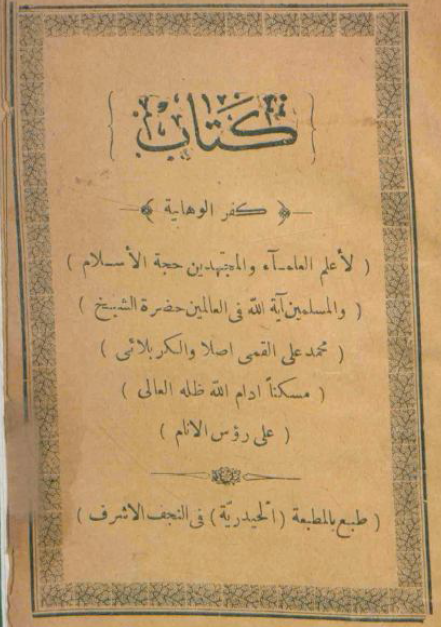 ﴿ كتاب ﴾
﴿ كفر الوهابية ﴾
( لأعلم العلمآء والمجتهدين حجة الأسلام )
( والمسلمين آية الله فى العالمين حضرة الشيخ )
( محمد على القمى اصلا والكربلائى )
( مسكناً ادام الله ظله العالى )
( على رؤس الانام )
( طبع بالمطبعة ( الحيدريّة ) فى النجف الاشرف )